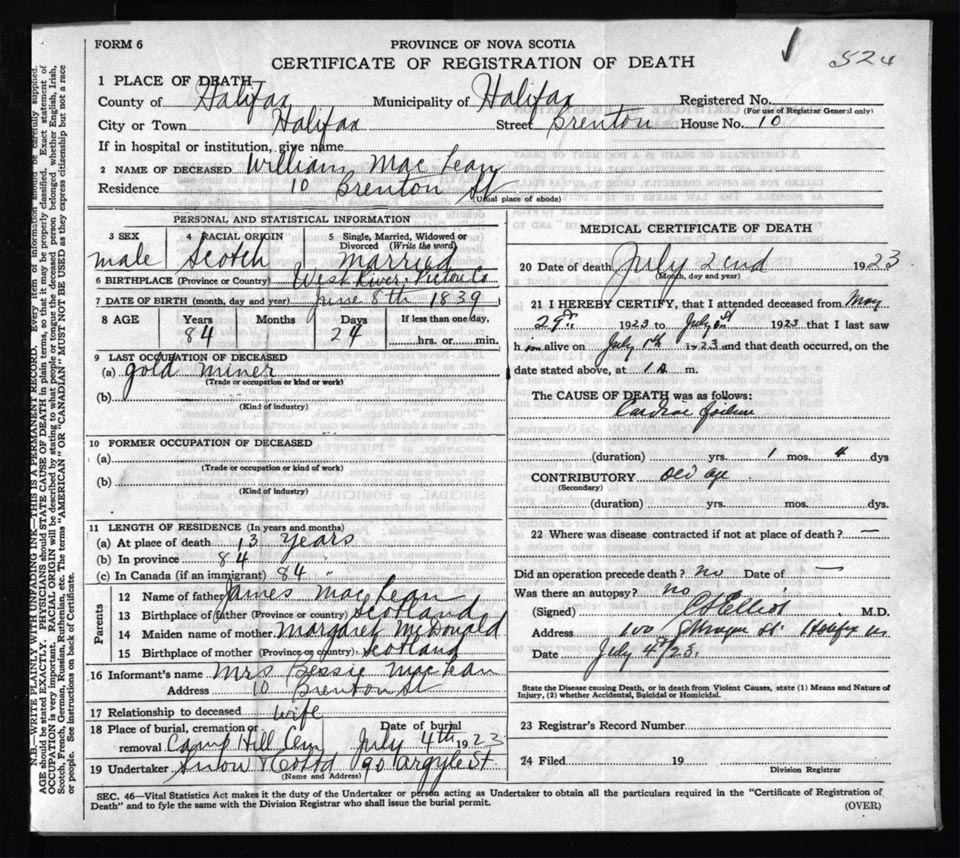 FORM 6
PROVINCE OF NOVA SCOTIA
524
CERTIFICATE OF REGISTRATION OF DEATH
1 PLACE OF DEATH
County of Halifax Municipality of Halifax Registered No.
(For use of Registrar General only)
City or Town Halifax Street Brenton House No. 10
If in hospital or institution, give name
2 NAME OF DECEASED William MacLean
Residence 10 Brenton St
(Usual place of abode)
PERSONAL AND STATISTICAL INFORMATION
3 SEX 4 RACIAL ORIGIN 5 Single, Married, Widowed or Divorced (Write the word)
male Scotch married
6 BIRTHPLACE (Province or Country) West River, Pictou Co
7 DATE OF BIRTH (month, day and year) June 8th 1839
8 AGE Years Months Days If less than one day,
84 24 hrs. or min.
9 LAST OCCUPATION OF DECEASED
(a) gold miner
(Trade or occupation or kind or work)
(b)
(Kind of industry)
10 FORMER OCCUPATION OF DECEASED
(a)
(Trade or occupation or kind of work)
(b)
(Kind of industry)
11 LENGTH OF RESIDENCE (In years and months)
(a) At place of death 13 years
(b) In province 84 "
(c) In Canada (if an immigrant) 84 "
Parents
12 Name of father James MacLean
13 Birthplace of father (Province or country) Scotland
14 Maiden name of mother Margaret McDonald
15 Birthplace of mother (Province or country) Scotland
16 Informant's name Mrs Bessie MacLean
Address 10 Brenton St
17 Relationship to deceased wife
18 Place of burial, cremation or removal Camp Hill Cem Date of burial July 4th 1923
19 Undertaker Snow & Co Ltd 90 Argyle St
(Name and Address)
MEDICAL CERTIFICATE OF DEATH
20 Date of death July 2nd 1923
(Month, day and year)
21 I HEREBY CERTIFY, that I attended deceased from May
29th 1923 to July 1st 1923 that I last saw
h im alive on July 1st 1923 and that death occurred, on the
date stated above, at m.
The CAUSE OF DEATH was as follows:
Cardiac failure
(duration) yrs. 1 mos. 4 dys
CONTRIBUTORY old age
(Secondary)
(duration) yrs. mos. dys.
22 Where was disease contracted if not at place of death? —
Did an operation precede death? no Date of —
Was there an autopsy? no
(Signed) Elliot M.D.
Address 100 St. Halifax NS
Date July 4th/23.
State the Disease causing Death, or in death from Violent Causes, state (1) Means and Nature of
Injury, (2) whether Accidental, Suicidal or Homicidal.
23 Registrar's Record Number
24 Filed 19
Division Registrar
SEC. 46—Vital Statistics Act makes it the duty of the Undertaker or person acting as Undertaker to obtain all the particulars required in the "Certificate of Registration of
Death" and to fyle the same with the Division Registrar who shall issue the burial permit.
(OVER)
N.B.—WRITE PLAINLY WITH UNFADING INK—THIS IS A PERMANENT RECORD. Every item of information should be carefully supplied.
AGE should be stated EXACTLY. PHYSICIANS should STATE CAUSE OF DEATH in plain terms, so that it may be properly classified. Exact statement of
OCCUPATION is very important. RACIAL ORIGIN will be described by stating to what people or tongue the deceased person belonged whether English, Irish,
Scotch, French, German, Russian, Ruthenian, etc. The terms "AMERICAN" OR "CANADIAN" MUST NOT BE USED as they express citizenship but not a race
or people. See instructions on back of Certificate.